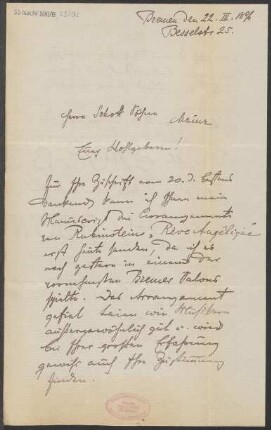 Bremen den 22. III. 1896
Besselstr 25.
Herrn Schott Söhne
Mainz
Euer Hochgeboren!
Für Ihre Zuschrift vom 20. d. bestens
dankend, kann ich Ihnen mein
Manuscript des Arrangements
von Rubinsteins „Rêve Angélique
erst heute senden, da ich es
noch gestern in einem der
vornehmsten Bremer Salons
spielte. Das Arrangement
gefiel Laien wie Musikern
außergewöhnlich gut u. wird
bei Ihrer großen Erfahrung
gewiss auch Ihre Zustimmung
finden.